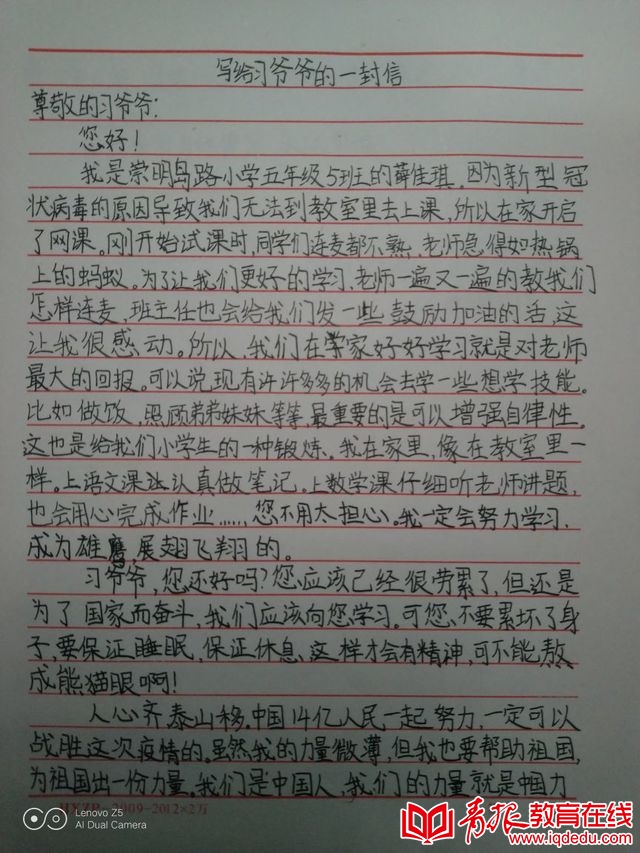 写给习爷爷的一封信
尊敬的习爷爷:
您好!
我是崇明岛路小学五年级5班的薛佳琪,因为新型冠
状病毒的原因导致我们无法到教室里去上课,所以在家开启
了网课。刚开始试课时,同学们连麦都不熟,老师急得如热锅
上的蚂蚁。为了让我们更好的学习,老师一遍又一遍的教我们
怎样连麦,班主任也会给我们发一些鼓励加油的话,这
让我很感动。所以,我们在家好好学习就是对老师
最大的回报。可以说,现有许许多多的机会去学一些想学技能。
比如做饭,照顾弟弟妹妹等等,最重要的是可以增强自律性。
这也是给我们小学生的一种锻炼。我在家里,像在教室里一
样。上语文课认真做笔记。上数学课仔细听老师讲题,
也会用心完成作业......您不用太担心。我一定会努力学习,
成为雄鹰,展翅飞翔的。
习爷爷,您还好吗?您应该已经很劳累了,但还是
为了国家而奋斗,我们应该向您学习。可您不要累坏了身
子,要保证睡眠,保证休息,这样才会有精神,可不能熬
成熊猫眼啊!
人心齐,泰山移。中国14亿人民一起努力,一定可以
战胜这次疫情的。虽然我的力量微薄,但我也要帮助祖国,
为祖国出一份力量。我们是中国人,我们的力量就是中国力
HXZP-2009-2012×2万
Lenovo Z5
AI Dual Camera
青报教育在线
www.iqdedu.com